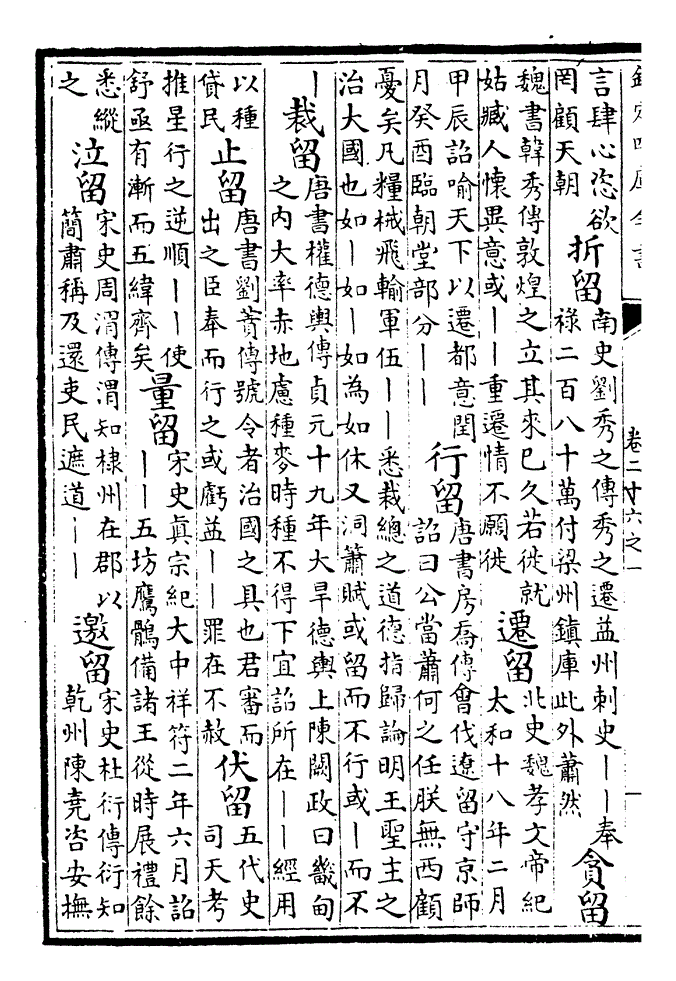 欽定四庫全書
卷二十六之一
言肆心恣欲
罔顧天朝
折留
南史劉秀之傳秀之遷益州刺史丨丨奉
祿二百八十萬付梁州鎮庫此外蕭然
貪留
魏書韓秀傳敦煌之立其來已久若徙就
姑臧人懷異意或丨丨重遷情不願徙
遷留
北史魏孝文帝紀
太和十八年二月
甲辰詔喻天下以遷都意閏
月癸酉臨朝堂部分丨丨
行留
唐書房喬傳會伐遼留守京師
詔曰公當蕭何之任朕無西顧
憂矣凡糧械飛輸軍伍丨丨悉裁總之道德指歸論明王聖主之
治大國也如丨如丨如為如休又洞簫賦或留而不行或丨而不
丨
裁留
唐書權德輿傳貞元十九年大旱德輿上陳闕政曰畿甸
之內大率赤地慮種麥時種不得下宜詔所在丨丨經用
以種
貸民
止留
唐書劉蕡傳號令者治國之具也君審而
出之臣奉而行之或虧益丨丨罪在不赦
伏留
五代史
司天考
推星行之逆順丨丨使
舒亟有漸而五緯齊矣
量留
宋史真宗紀大中祥符二年六月詔
丨丨五坊鷹鶻備諸王從時展禮餘
悉縱
之
泣留
宋史周渭傳渭知棣州在郡以
簡肅稱及還吏民遮道丨丨
邀留
宋史杜衍傳衍知
乾州陳堯咨安撫